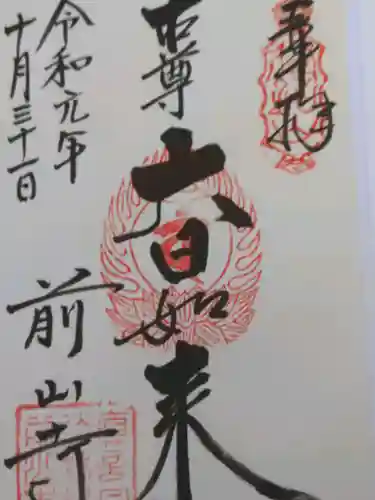 奉拝
本尊
大日如来
令和元年
十月三十一日
前山寺